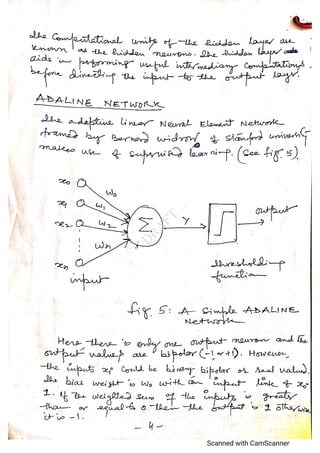 The Computational units of the hidden layer are
known as the hidden neurons. The hidden layer
aids in performing useful intermediary computations
before directing the input to the output layer.
ADALINE NETWORK
The adaptive linear Neural Element Network
framed by Bernard widrow of Stanford university
makes use of supervised learning. (See fig 5)
x0 w0
x1 w1
x2 w2
Σ y output
wn
xn
input
thresholding
function
fig. 5: A Simple ADALINE
Network
Here there is only one output neuron and the
output values are bipolar (-1 or +1). However,
the inputs xi could be binary bipolar or real valued.
The bias weight is w0 with an input link of x0
1. If the weighted sum of the inputs is greater
than or equal to 0 then the output is 1 otherwise
it is -1.
- 4 -
Scanned with CamScanner